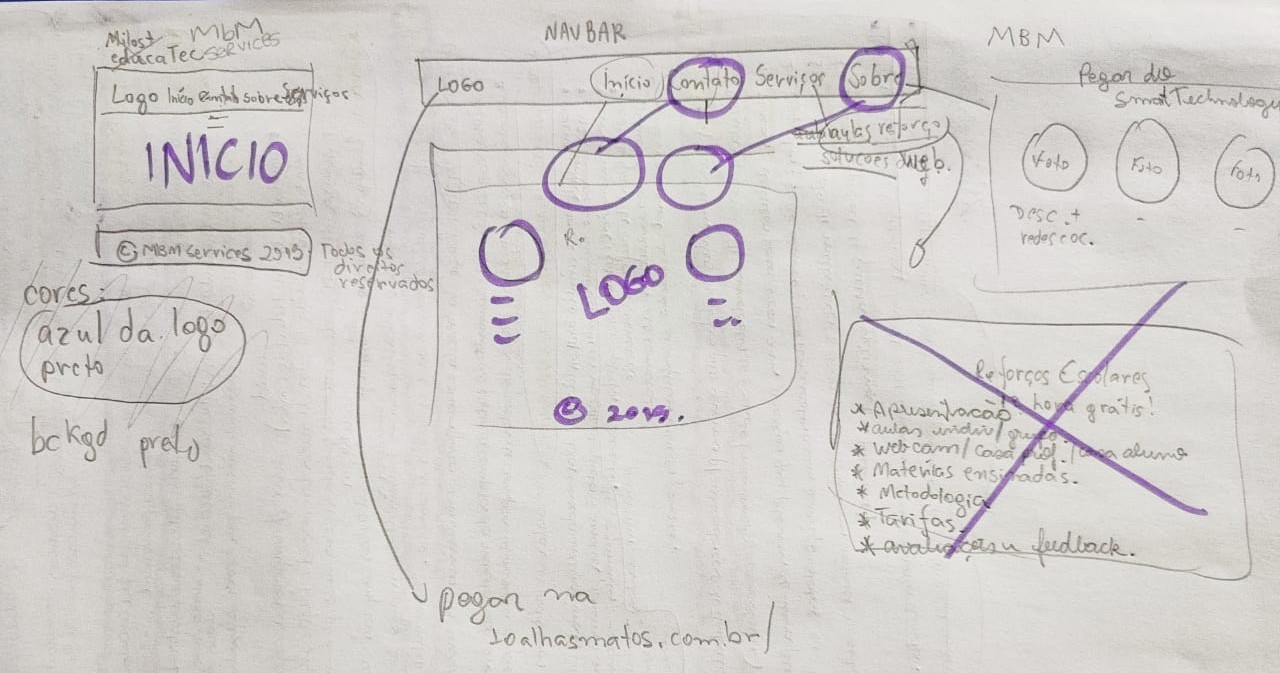 MbM
SERVICES
Logo Início Contato Sobre Serviços
INICIO
© MBM services 2019
Todos os
direitos
reservados
cores:
azul da logo
preto
bckgd preto
NAVBAR
LOGO Início Contato Serviços Sobre
aulas reforço
soluções web.
LOGO
© 2019.
pegar na
toalhasmatos.com.br/
MBM
Pegar do
SmartTechnology
Foto Foto Foto
Desc. +
redes soc.
Reforços Escolares
* Apresentação 1ª hora grátis!
* aulas indiv/grupo
* webcam/casa prof./casa aluno
* Matérias ensinadas.
* Metodologia
* Tarifas
* avaliações feedback.